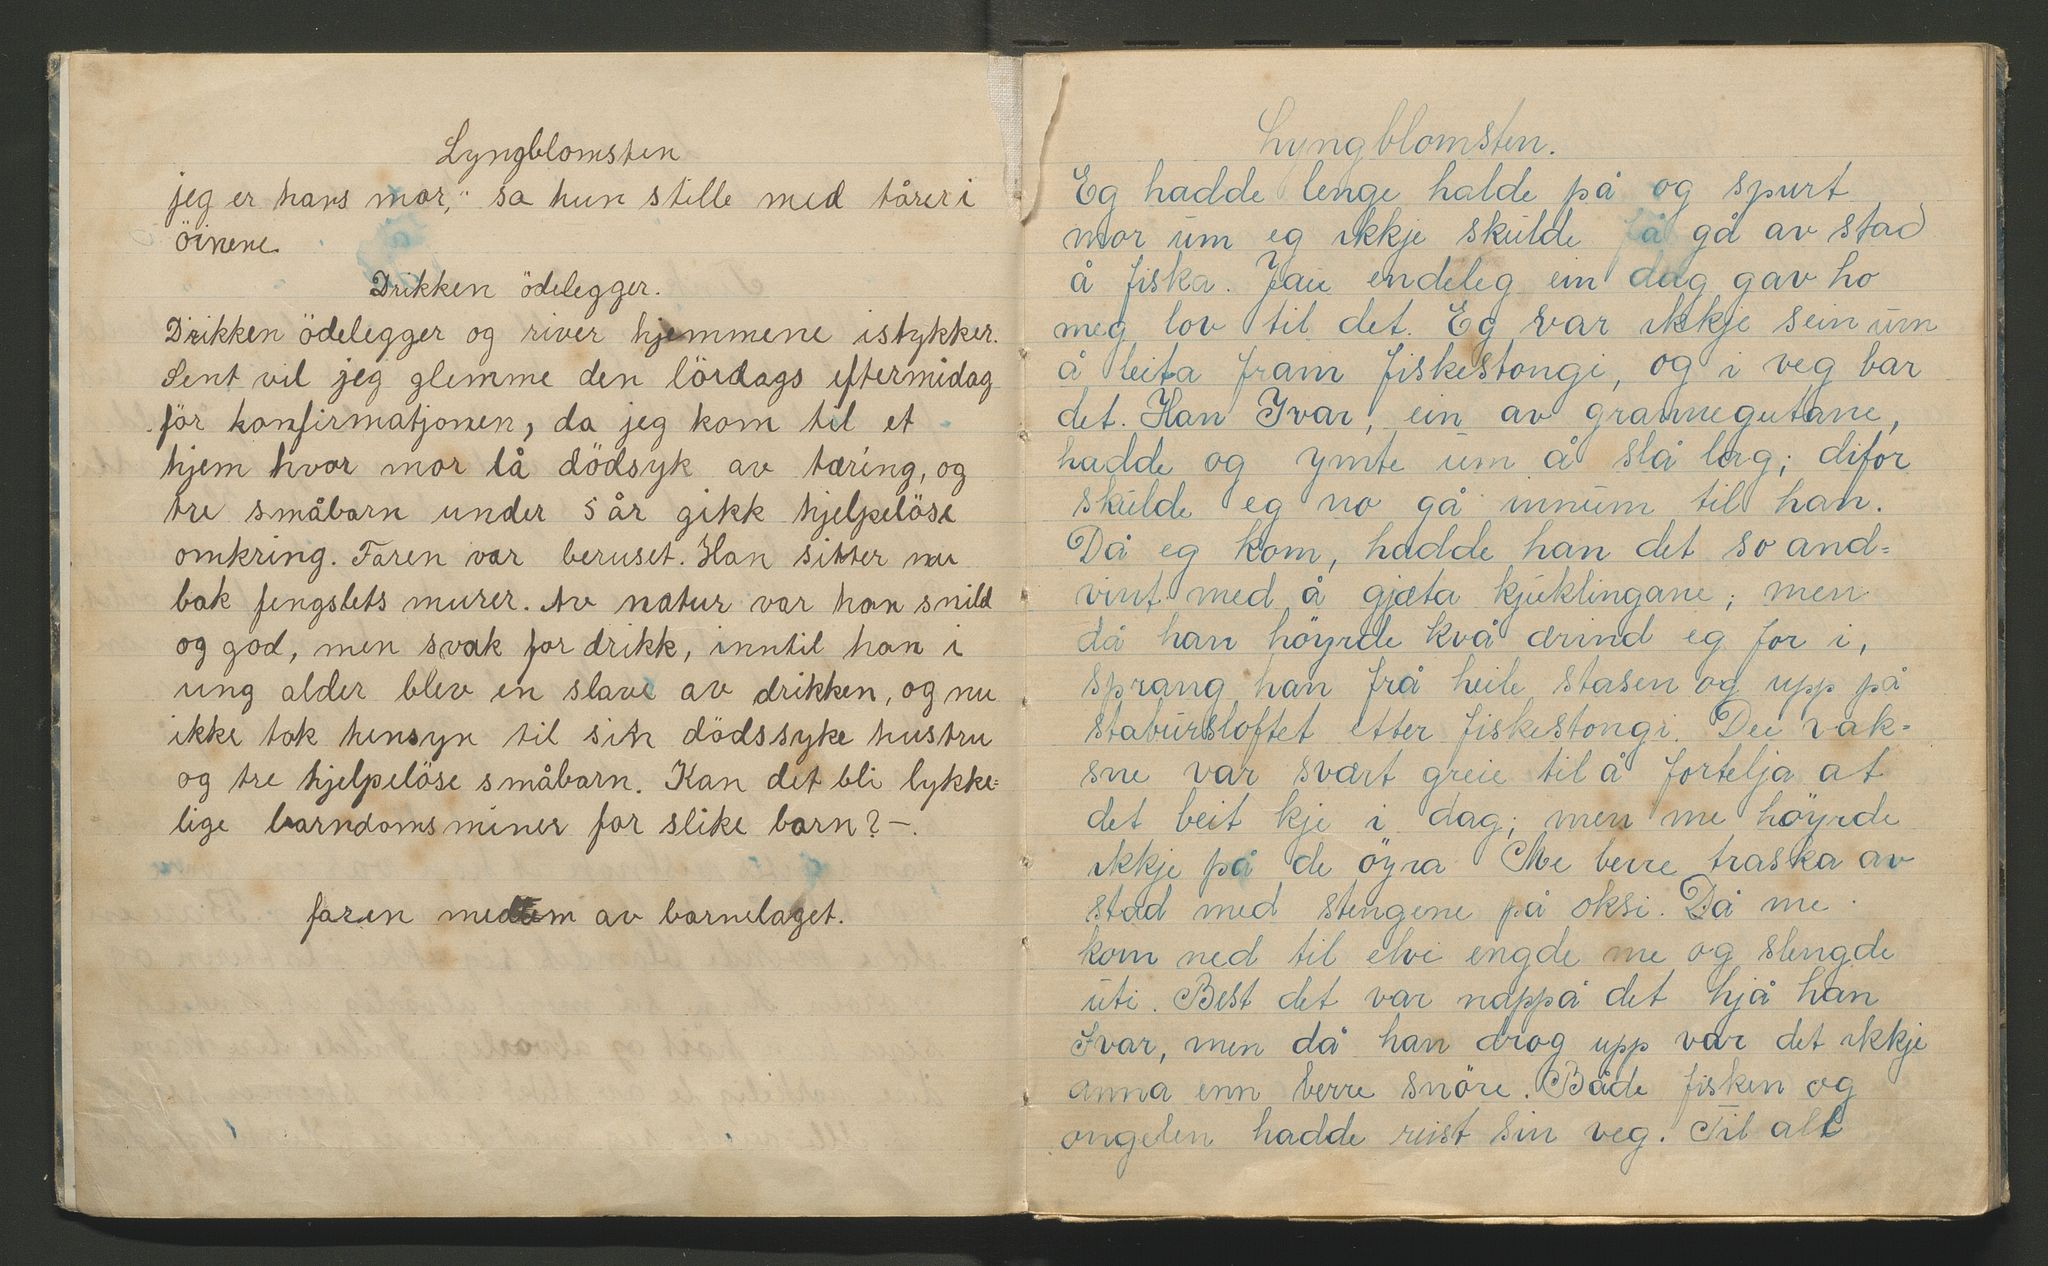 Lyngblomsten
jeg er hans mor," sa hun stille med tårer i
öinene.
Drikken ödelegger.
Drikken ödelegger og river hjemmene istykker.
Sent vil jeg glemme den lördags eftermidag
för konfirmatjonen, da jeg kom til et
hjem hvor mor lå dödsyk av tæring, og
tre småbarn under 5 år gikk hjelpelöse
omkring. Faren var beruset. Han sitter nu
bak fengslets murer. Av natur var han snild
og god, men svak for drikk, inntil han i
ung alder blev en slave av drikken, og nu
ikke tok hensyn til sin dödssyke hustru
og tre hjelpelöse småbarn. Kan det bli lykke=
lige barndomsminer for slike barn? –.
faren medlem av barnelaget.
Lyngblomsten.
Eg hadde lenge halde på og spurt
mor um eg ikkje skulde få gå av stad
å fiska. Jau endeleg ein dag gav ho
meg lov til det. Eg var ikkje sein um
å leita fram fiskestongi, og i veg bar
det. Han Ivar, ein av grannegutane,
hadde og ymte um å slå lag; difor
skulde eg no gå innum til han.
Då eg kom, hadde han det so and=
vint med å gjæta kjuklingane; men
då han höyrde kvå ærind eg for i,
sprang han frå heile stasen og upp på
stabursloftet etter fiskestongi. Dei vak=
sne var svært greie til å fortelja at
det beit kje i dag; men me höyrde
ikkje på de öyra. Me berre traska av
stad med stengene på oksi. Då me
kom ned til elvi engde me og slengde
uti. Best det var nappå det hjå han
Ivar, men då han drog upp var det ikkje
anna enn berre snöre. Både fisken og
ongelen hadde reist sin veg. Til alt